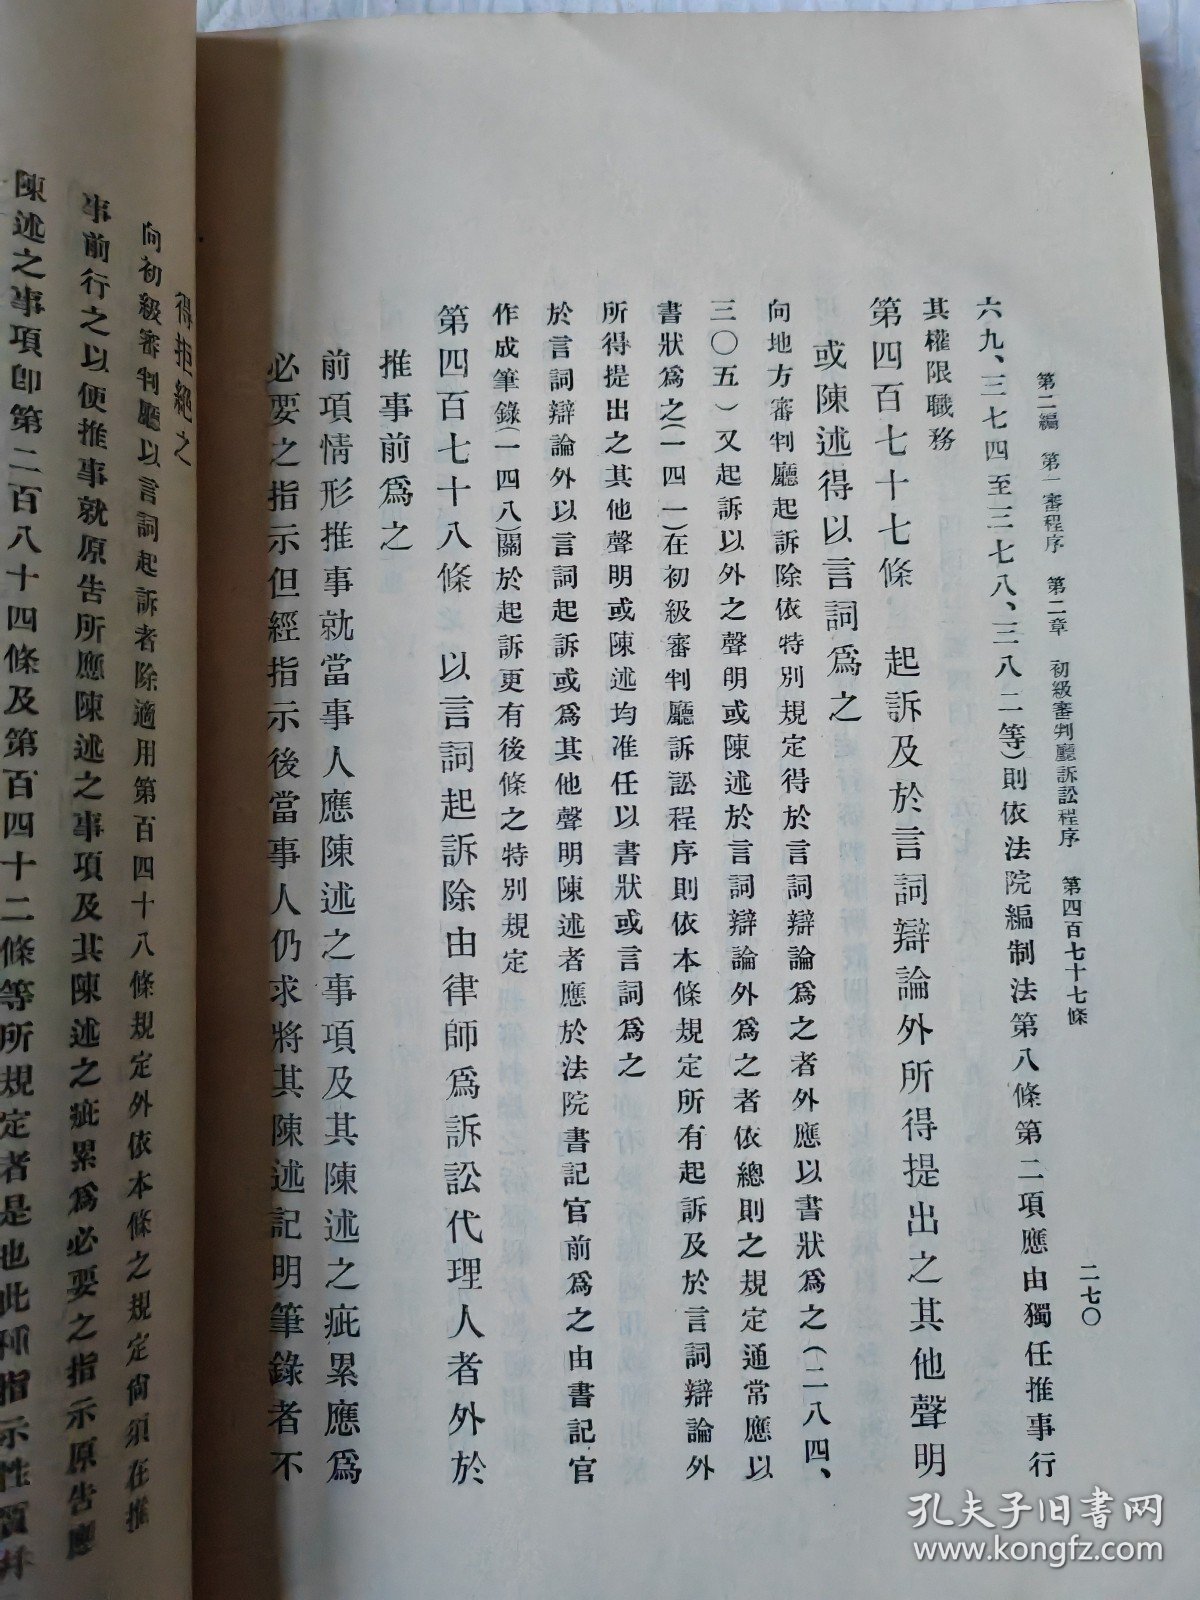 第二編　第一審程序　第二章　初級審判廳訴訟程序　第四百七十七條　二七〇
六九、三七四至三七八、三八二等)則依法院編制法第八條第二項應由獨任推事行
其權限職務
第四百七十七條　起訴及於言詞辯論外所得提出之其他聲明
或陳述得以言詞爲之
向地方審判廳起訴除依特別規定得於言詞辯論爲之者外應以書狀爲之(二八四、
三〇五)又起訴以外之聲明或陳述於言詞辯論外爲之者依總則之規定通常應以
書狀爲之(一四一)在初級審判廳訴訟程序則依本條規定所有起訴及於言詞辯論外
所得提出之其他聲明或陳述均准任以書狀或言詞爲之
於言詞辯論外以言詞起訴或爲其他聲明陳述者應於法院書記官前爲之由書記官
作成筆錄(一四八)關於起訴更有後條之特別規定
第四百七十八條　以言詞起訴除由律師爲訴訟代理人者外於
推事前爲之
前項情形推事就當事人應陳述之事項及其陳述之疵累應爲
必要之指示但經指示後當事人仍求將其陳述記明筆錄者不
得拒絕之
向初級審判廳以言詞起訴者除適用第百四十八條規定外依本條之規定尙須在推
事前行之以便推事就原告所應陳述之事項及其陳述之疵累爲必要之指示原告應
陳述之事項卽第二百八十四條及第百四十二條等所規定者是也此種指示性質幷
孔夫子旧书网
www.kongfz.com